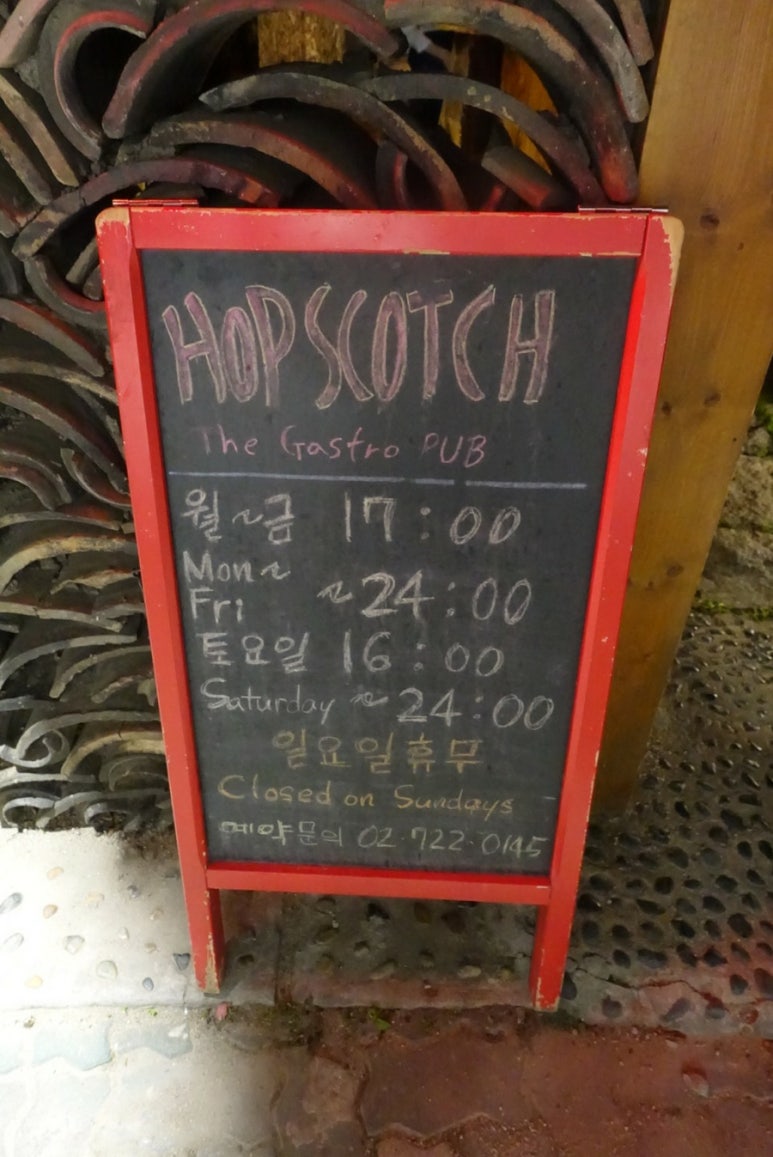 HOPSCOTCH
The Gastro PUB
월~금 17:00
Mon~
Fri ~24:00
토요일 16:00
Saturday ~24:00
일요일휴무
Closed on Sundays
예약문의 02.722.0145